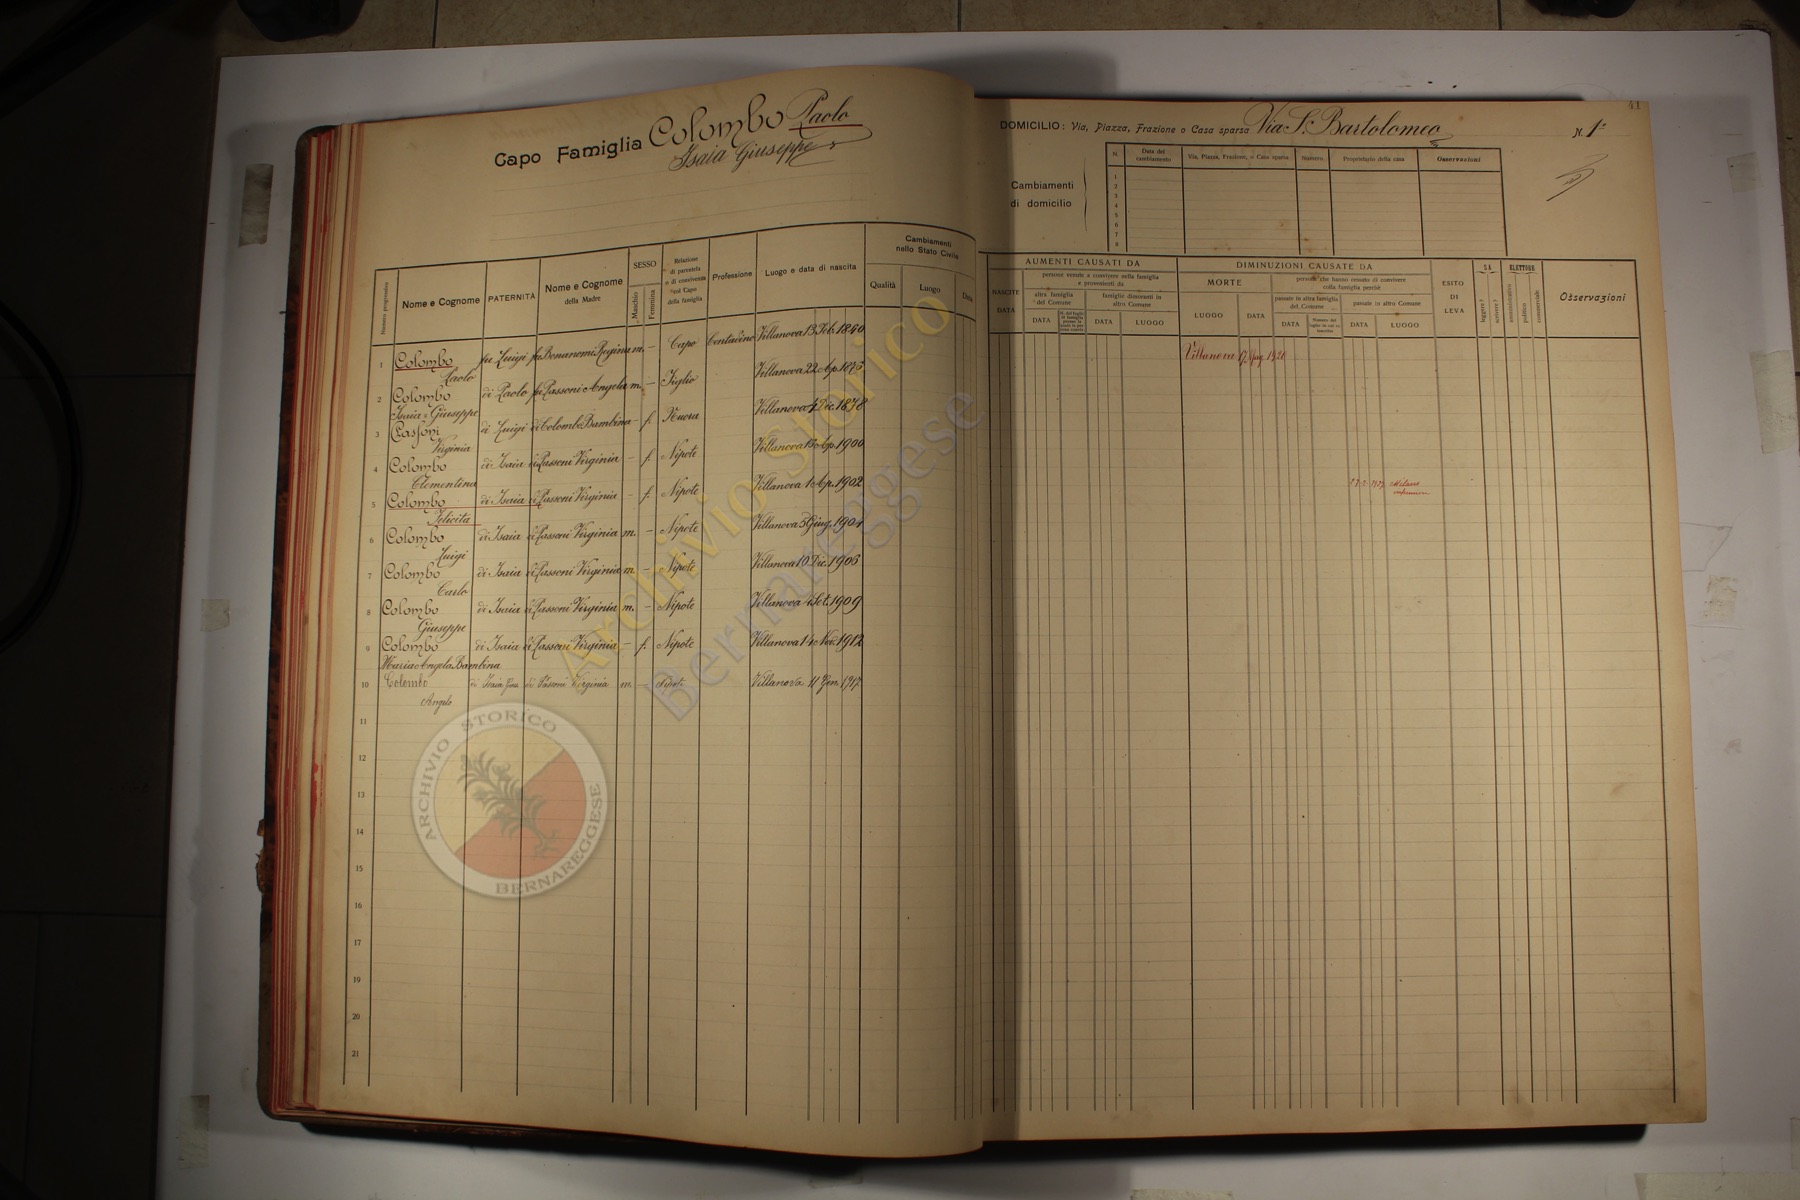 41
Capo Famiglia Colombo Paolo
Isaia Giuseppe
DOMICILIO: Via, Piazza, Frazione o Casa sparsa Via S. Bartolomeo N. 1
Cambiamenti di domicilio
N. Data del cambiamento Via, Piazza, Frazione, o Casa sparsa Numero Proprietario della casa Osservazioni
1
2
3
4
5
6
7
8
Numero progressivo Nome e Cognome PATERNITÀ Nome e Cognome della Madre SESSO Maschio Femmina Relazione di parentela o di convivenza col Capo della famiglia Professione Luogo e data di nascita Cambiamenti nello Stato Civile Qualità Luogo Data
NASCITE DATA AUMENTI CAUSATI DA persone venute a convivere nella famiglia e provenienti da altra famiglia del Comune DATA famiglie dimoranti in altro Comune DATA LUOGO
DIMINUZIONI CAUSATE DA MORTE LUOGO DATA persone che hanno cessato di convivere colla famiglia perchè passate in altra famiglia del Comune DATA passate in altro Comune DATA LUOGO
ESITO DI LEVA SA leggere? scrivere? ELETTORE amministrativo politico commerciale Osservazioni
1 Colombo Paolo fu Luigi fu Bonanomi Regina m. – Capo Contadino Villanova 13 Feb. 1850 Villanova 1926
2 Colombo Isaia Giuseppe di Paolo fu Passoni Angela m. – Figlio Villanova 22 Ap. 1875
3 Passoni Virginia di Luigi di Colombo Bambina – f. Nuora Villanova 4 Dic. 1878
4 Colombo Clementina di Isaia di Passoni Virginia – f. Nipote Villanova 13 Ap. 1900
5 Colombo Felicita di Isaia di Passoni Virginia – f. Nipote Villanova 1 Ap. 1902 Milano
6 Colombo Luigi di Isaia di Passoni Virginia m. – Nipote Villanova 5 Giug. 1904
7 Colombo Carlo di Isaia di Passoni Virginia m. – Nipote Villanova 10 Dic. 1906
8 Colombo Giuseppe di Isaia di Passoni Virginia m. – Nipote Villanova Set. 1909
9 Colombo Maria Angela Bambina di Isaia di Passoni Virginia – f. Nipote Villanova 14 Nov. 1912
10 Colombo Angelo di Isaia Gius. di Passoni Virginia m. – Nipote Villanova 11 Gen. 1917
11
12
13
14
15
16
17
18
19
20
21
Archivio Storico
Bernareggese
ARCHIVIO STORICO
BERNAREGGESE